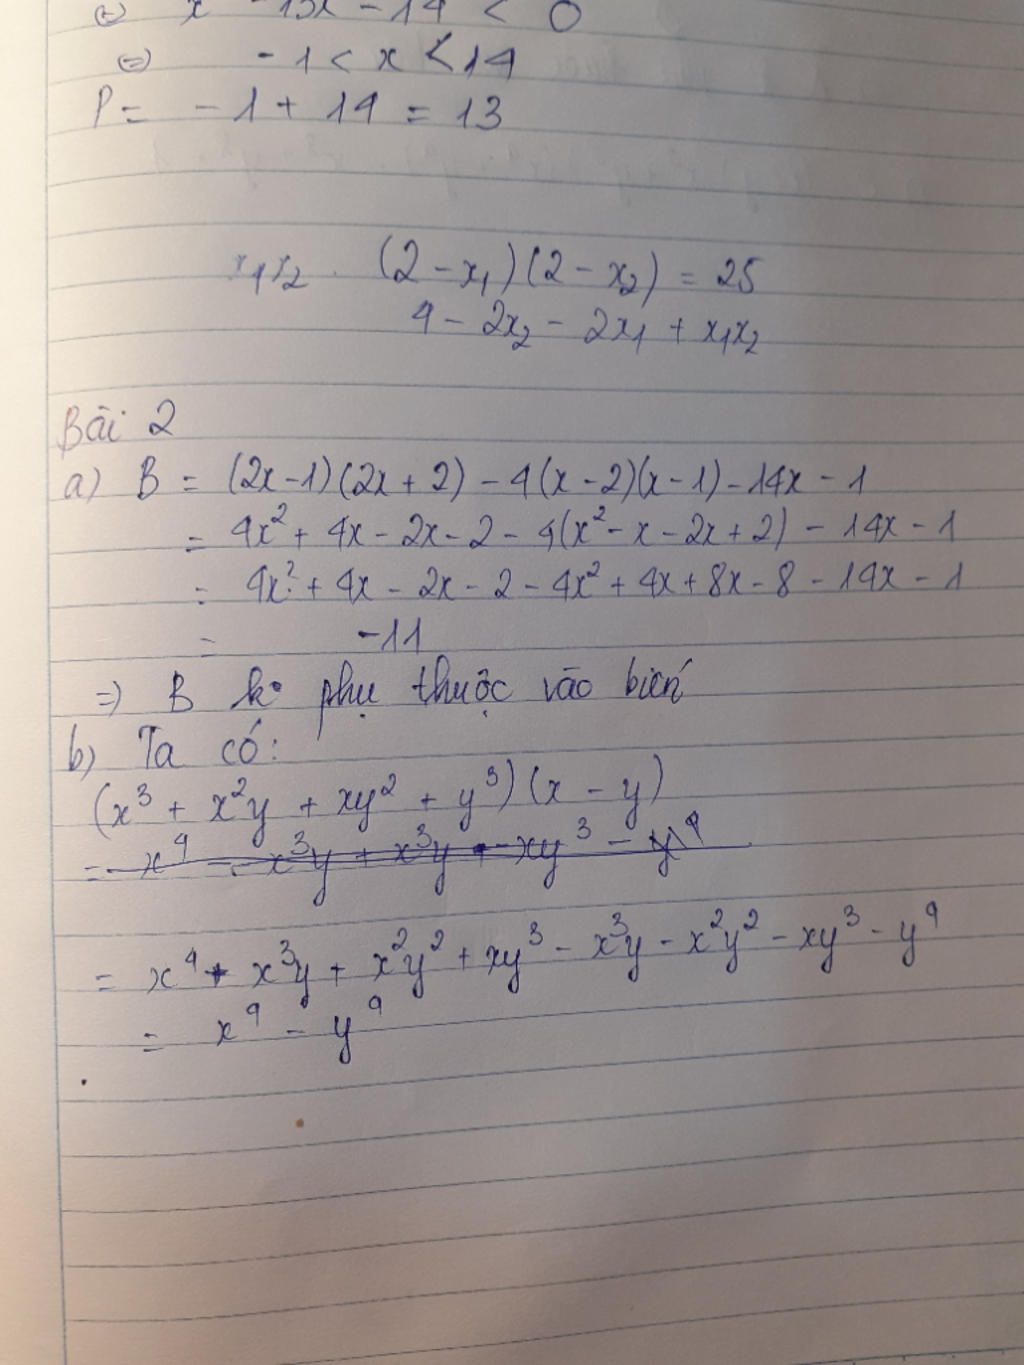 ⇔ x² - 13x - 14 < 0
⇔ -1 < x < 14
P = -1 + 14 = 13
x₁x₂ . (2 - x₁)(2 - x₂) = 25
4 - 2x₂ - 2x₁ + x₁x₂
Bài 2
a) B = (2x - 1)(2x + 2) - 4(x - 2)(x - 1) - 14x - 1
= 4x² + 4x - 2x - 2 - 4(x² - x - 2x + 2) - 14x - 1
= 4x² + 4x - 2x - 2 - 4x² + 4x + 8x - 8 - 14x - 1
= -11
=) B ko phụ thuộc vào biến
b) Ta có:
(x³ + x²y + xy² + y³)(x - y)
= x⁴ - x³y + x³y - xy³ - y⁴
= x⁴ + x³y + x²y² + xy³ - x³y - x²y² - xy³ - y⁴
= x⁴ - y⁴